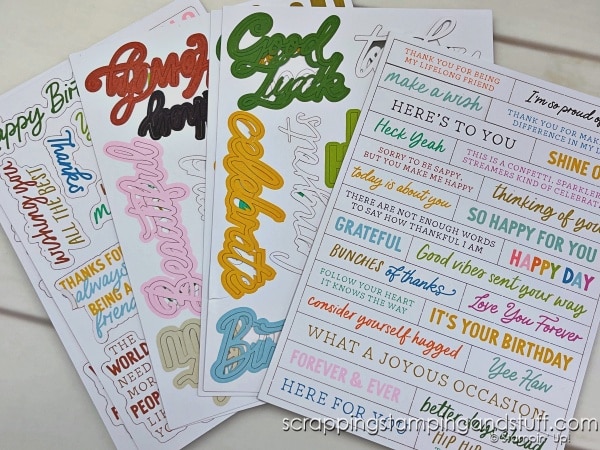 appy Bir
Thanks
wishing you
ALL THE BEST
THANKS FOR
always
BEING A
friend
THE
WORLD
NEEDS
MORE
PEOPLE
LIKE
Y
Good
Luck
celebrate
congrats
Bi
THANK YOU FOR BEING
MY LIFELONG FRIEND
make a wish
I'm so proud of
HERE'S TO YOU
THANK YOU FOR MAK
DIFFERENCE IN MY L
Heck Yeah
SHINE O
SORRY TO BE SAPPY,
BUT YOU MAKE ME HAPPY
THIS IS A CONFETTI, SPARKLER
STREAMERS KIND OF CELEBRAT
today is about you
thinking of you
THERE ARE NOT ENOUGH WORDS
TO SAY HOW THANKFUL I AM
SO HAPPY FOR YOU
GRATEFUL
Good vibes sent your way
HAPPY DAY
BUNCHES of thanks
Love You Forever
FOLLOW YOUR HEART
IT KNOWS THE WAY
IT'S YOUR BIRTHDAY
consider yourself hugged
Yee Haw
WHAT A JOYOUS OCCASION
FOREVER & EVER
better days ahead
HERE FOR Y
HIP HIP
scrappingstampingandstuff.com
© Stampin' Up!